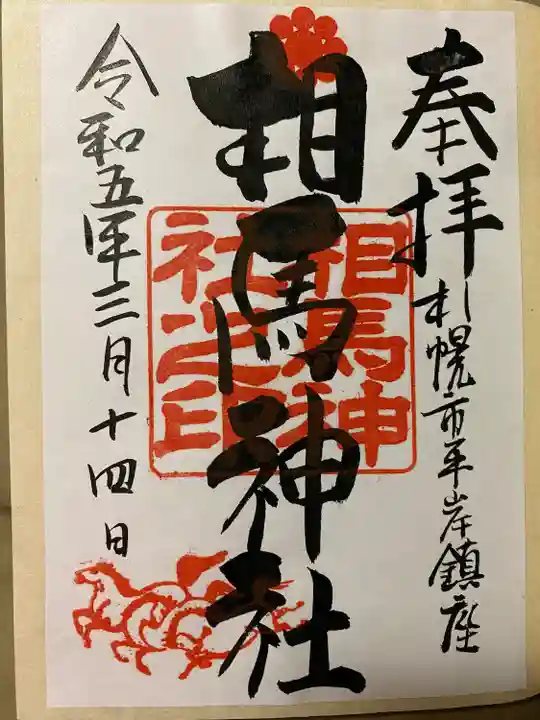 奉拝
札幌市平岸鎮座
相馬神社
相馬神
社之印
令和五年三月十四日